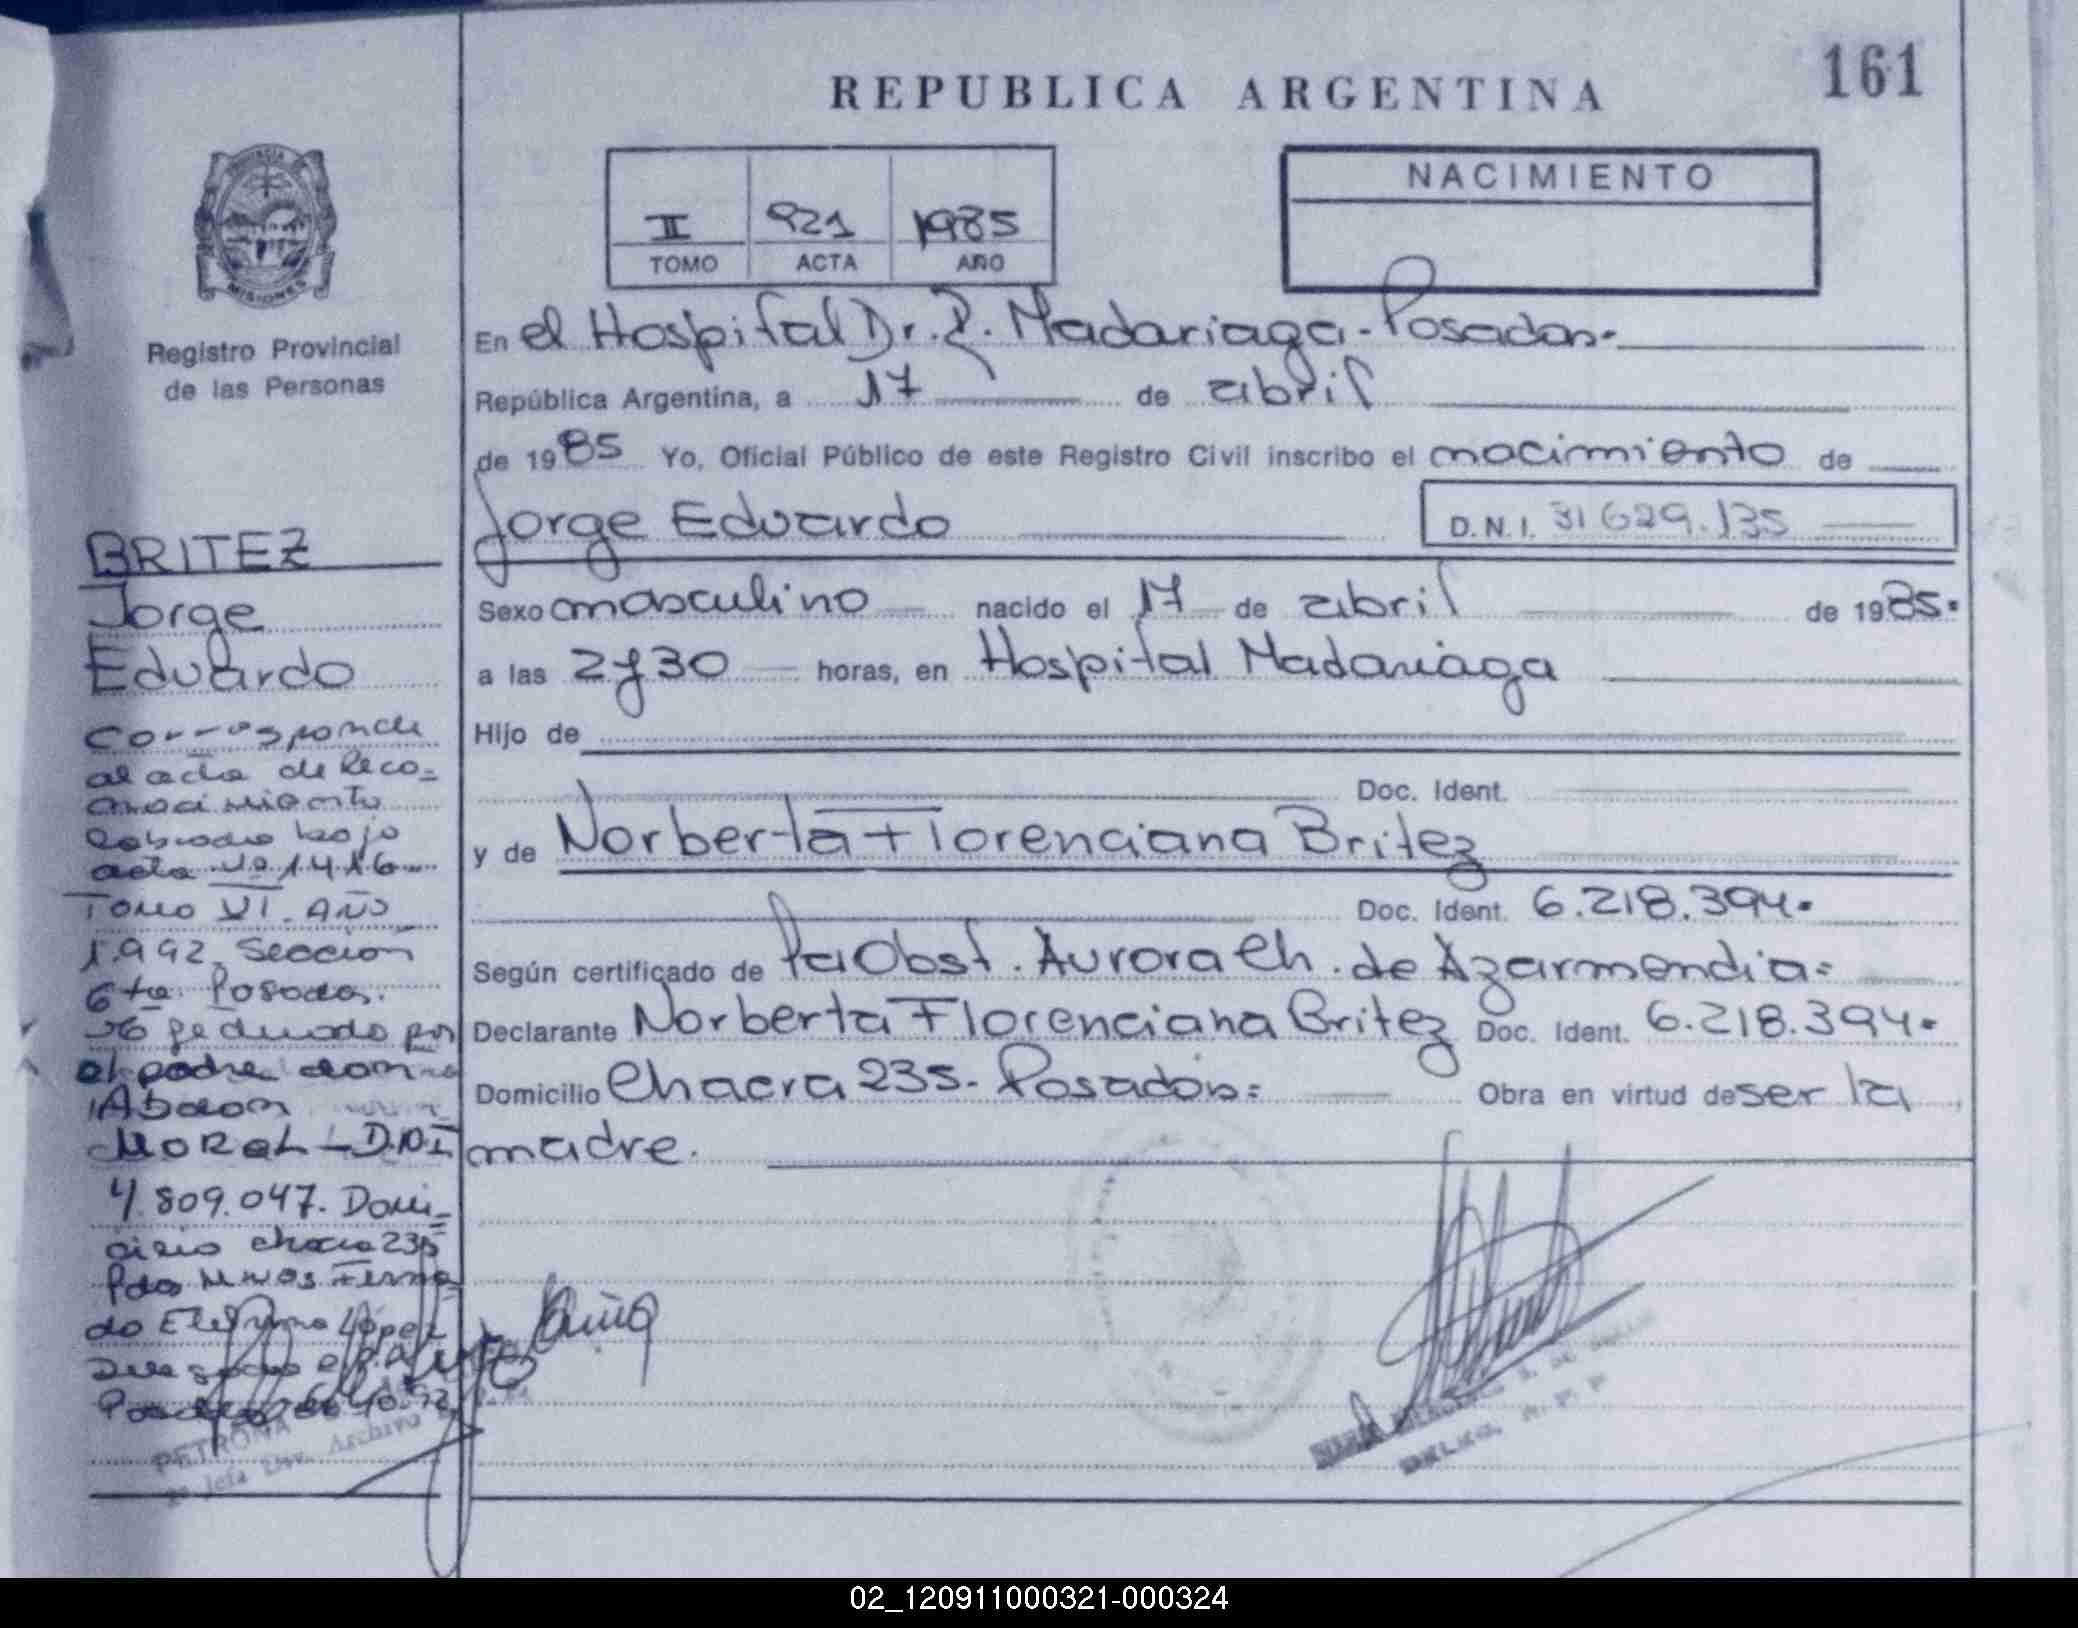 161
REPUBLICA ARGENTINA
NACIMIENTO
II 921 1985
TOMO ACTA AÑO
MISIONES
Registro Provincial
de las Personas
En el Hospital Dr. R. Madariaga - Posadas.
República Argentina, a 17 de abril
de 1985 Yo, Oficial Público de este Registro Civil inscribo el nacimiento de
Jorge Eduardo D.N.I. 31629.135
Sexo masculino nacido el 17 de abril de 1985.
a las 2 y 30 horas, en Hospital Madariaga
Hijo de
Doc. Ident.
y de Norberta Florenciana Britez
Doc. Ident. 6.218.394.
Según certificado de la Obst. Aurora Ch. de Azarmendia=
Declarante Norberta Florenciana Britez Doc. Ident. 6.218.394.
Domicilio Chacra 235. Posadas= Obra en virtud de ser la
madre.
BRITEZ
Jorge
Eduardo
Corresponde
al acta de Reco=
nocimiento
labrado bajo
acta Nº 1416
Tomo VI. Año
1.992. Sección
6ta. Posadas.
por
el padre don
MOREL - D.N.I
4.809.047. Domi=
cilio chacra 235
Pdas
López
PETRONA
Jefa Div. Archivo
02_120911000321-000324